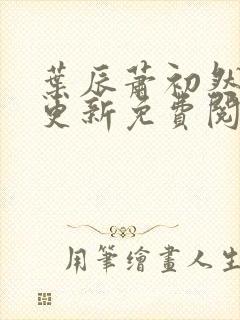 葉辰蕭初然
更新免費閱
用筆繪畫人生